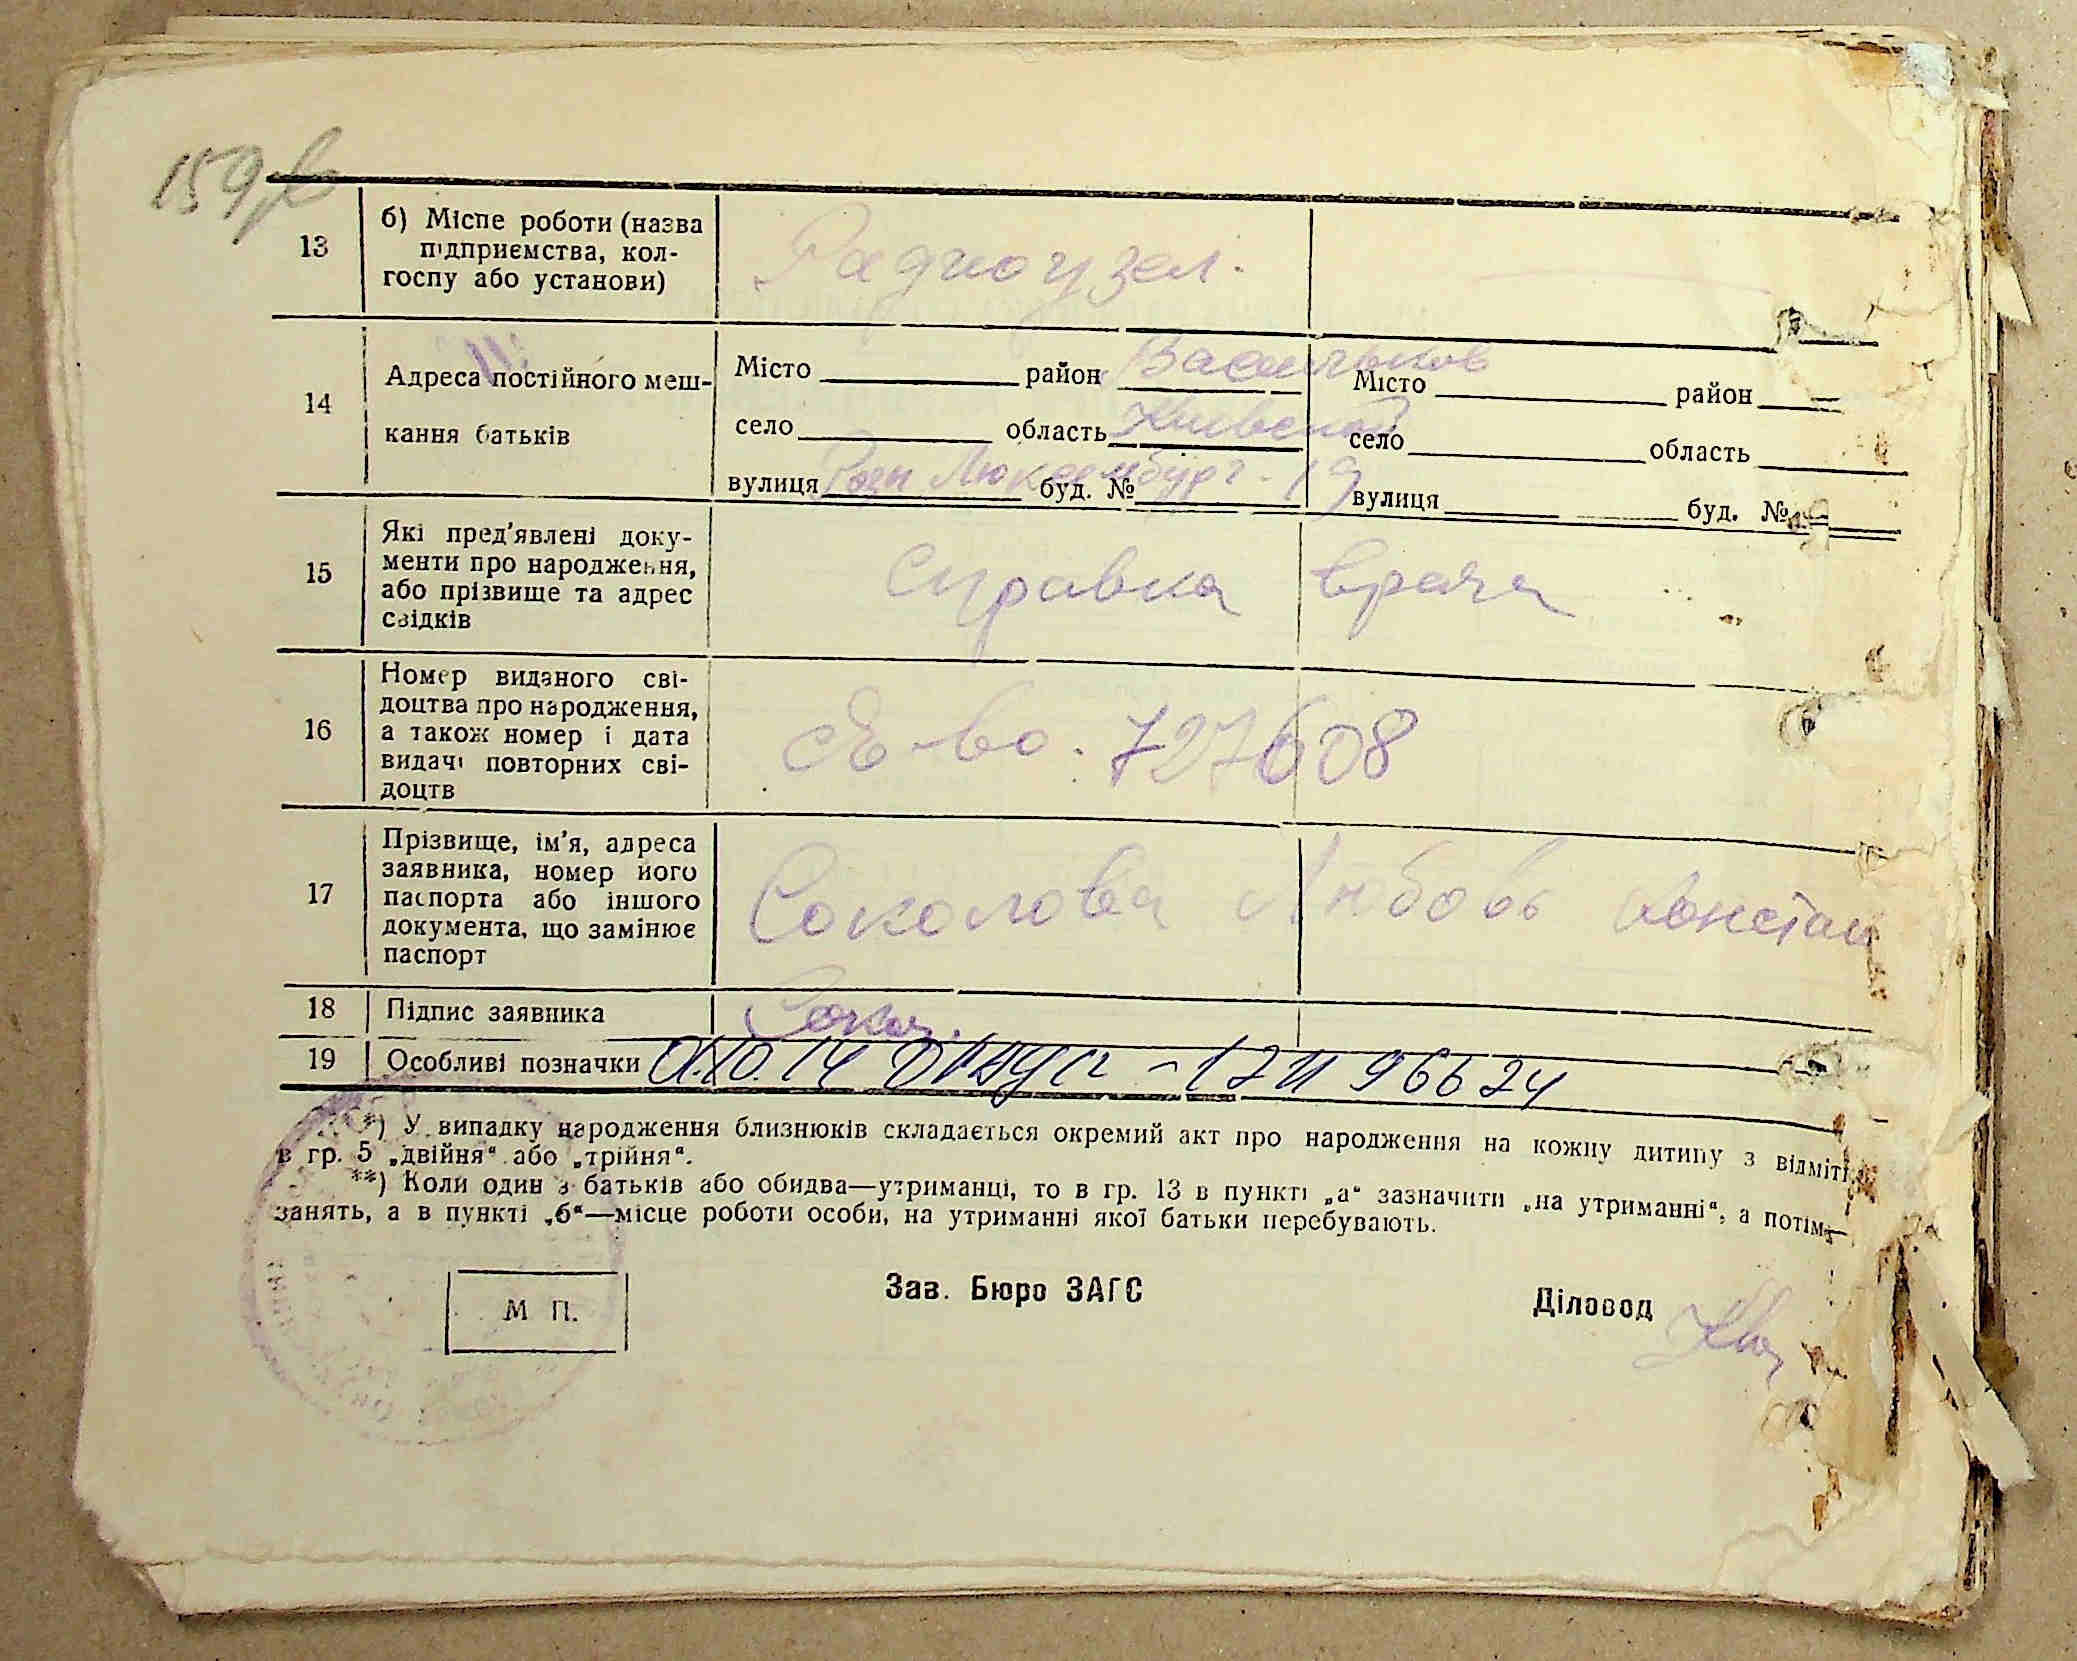 159
13
б) Місце роботи (назва
підприємства, кол-
госпу або установи)
Радиоузел.
14
Адреса постійного меш-
кання батьків
Місто район Васильков
село область Киевской
вулиця Розы Люксембург - 19 буд. №
Місто район
село область
вулиця буд. №
15
Які пред'явлені доку-
менти про народження,
або прізвище та адрес
свідків
Справка врача
16
Номер виданого сві-
доцтва про народження,
а також номер і дата
видачі повторних сві-
доцтв
727608
17
Прізвище, ім'я, адреса
заявника, номер його
паспорта або іншого
документа, що замінює
паспорт
Соколова Любовь Констан
18
Підпис заявника
Сокол.
19
Особливі позначки
*) У випадку народження близнюків складається окремий акт про народження на кожну дитину з відміт
в гр. 5 „двійня“ або „трійня“.
**) Коли один з батьків або обидва—утриманці, то в гр. 13 в пункті „а“ зазначити „на утриманні“, а потім—
занять, а в пункті „б“—місце роботи особи, на утриманні якої батьки перебувають.
М П.
Зав. Бюро ЗАГС
Діловод